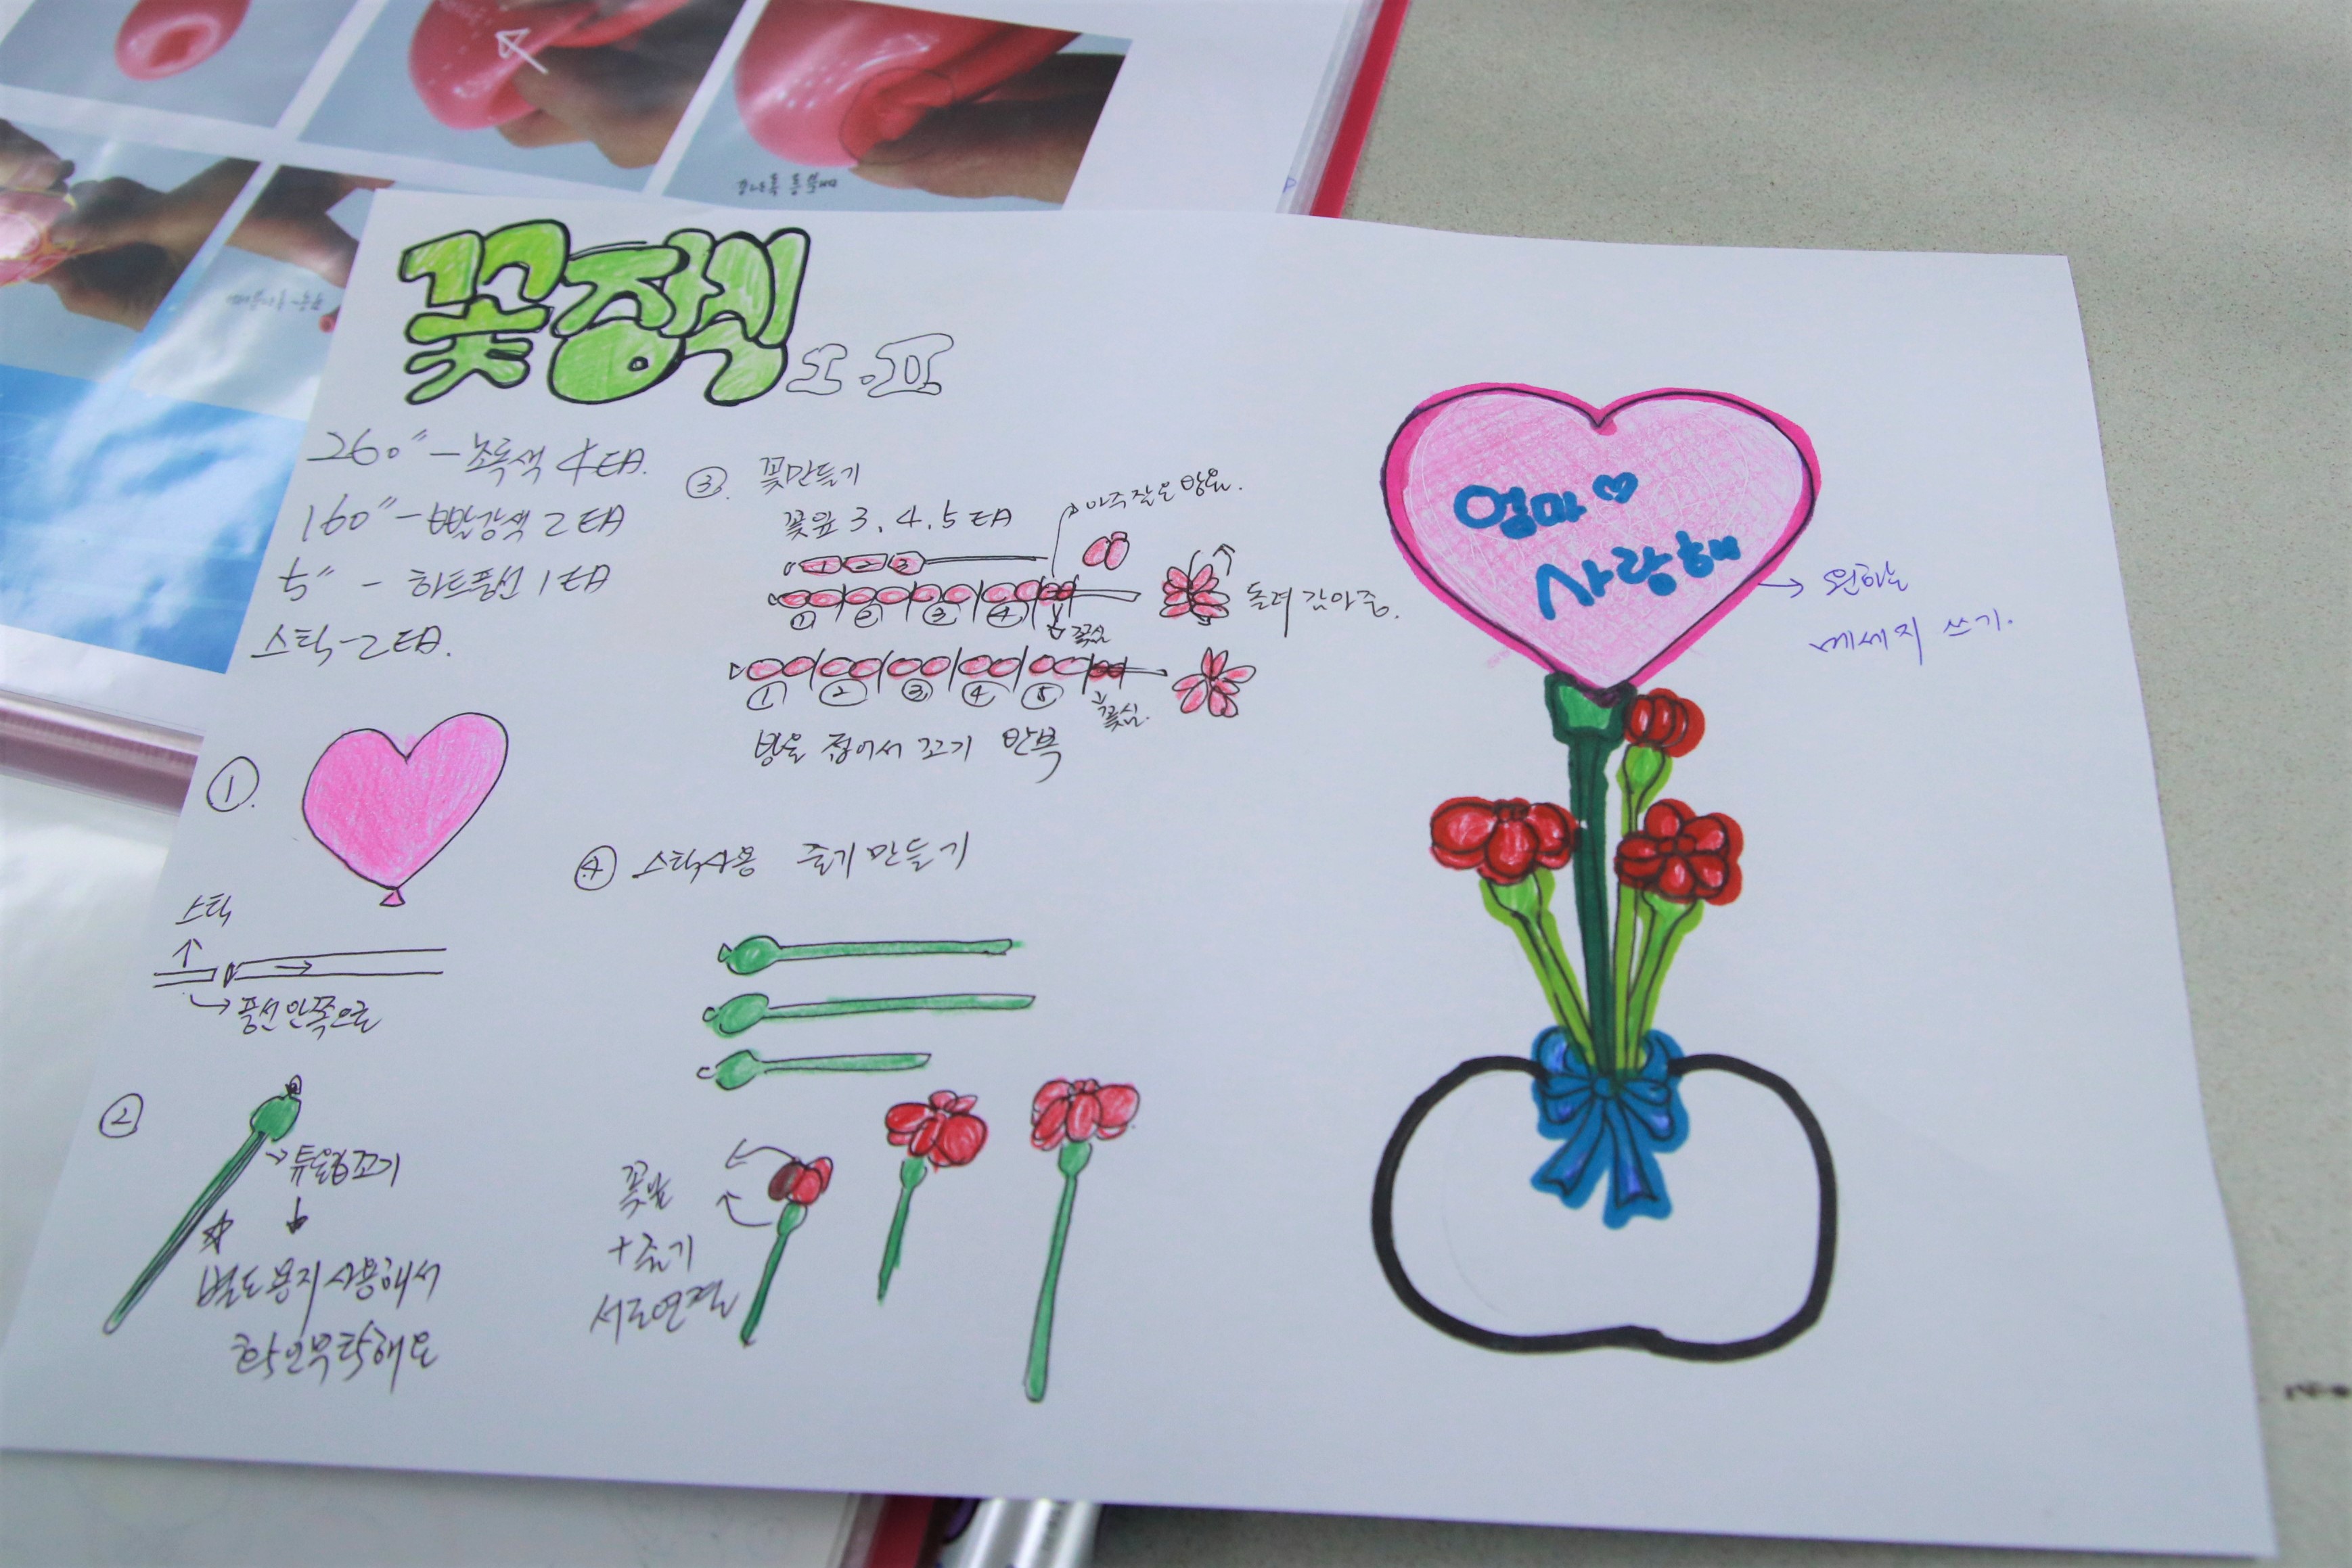 꽃장식
I.II
260" - 초록색 4 EA.
160" - 빨강색 2 EA
5" - 하트풍선 1 EA
스틱 - 2 EA.
①.
스틱
풍선안쪽으로
②
튜울립꼬기
별도용지사용해서
확인부탁해요
③. 꽃만들기
꽃잎 3. 4. 5 EA
아주작은 방울.
1 2 3
① ② ③ ④
꽃심
돌려 감아줌.
① ② ③ ④ ⑤
꽃심.
방울 접어서 꼬기 반복
④ 스틱사용 줄기 만들기
꽃잎
+ 줄기
서로연결
엄마♡
사랑해
원하는
메세지 쓰기.